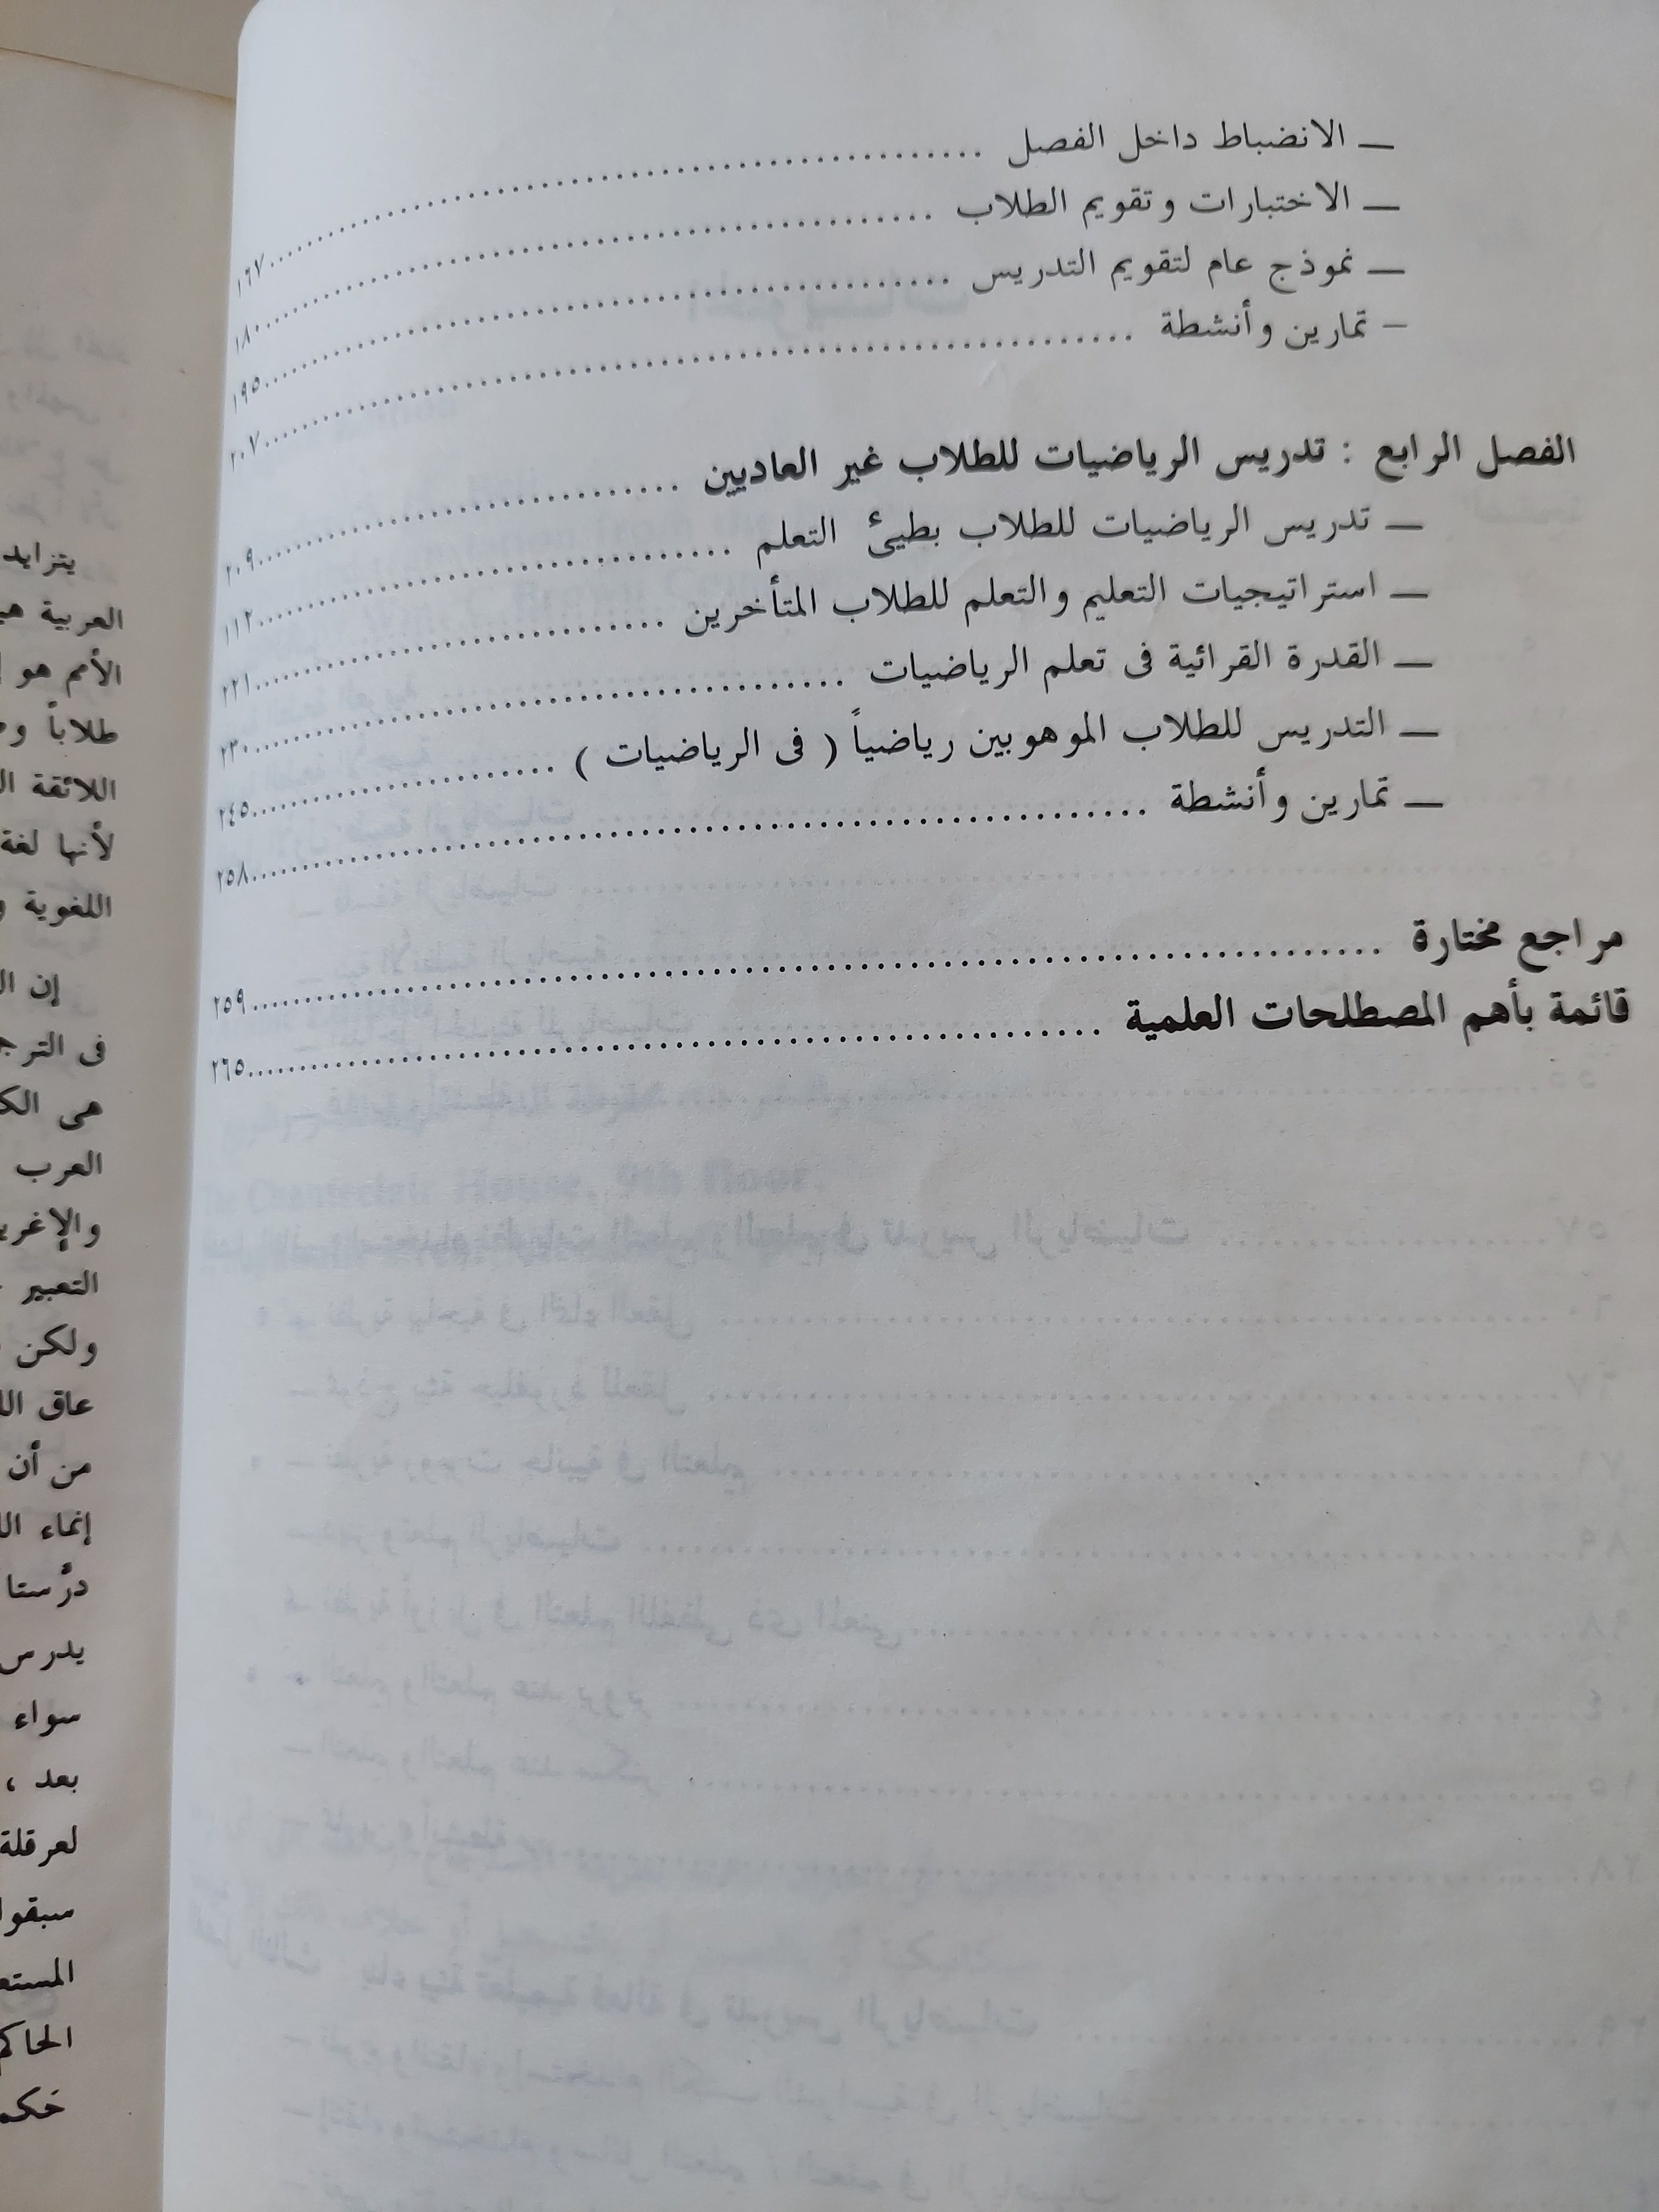 ـ الانضباط داخل الفصل ........ ١٦٧
ـ الاختبارات وتقويم الطلاب ........ ١٨٠
ـ نموذج عام لتقويم التدريس ........ ١٩٥
ـ تمارين وأنشطة ........ ٢٠٧
الفصل الرابع : تدريس الرياضيات للطلاب غير العاديين ........ ٢٠٩
ـ تدريس الرياضيات للطلاب بطيئ التعلم ........ ١١٢
ـ استراتيجيات التعليم والتعلم للطلاب المتأخرين ........ ٢٢١
ـ القدرة القرائية فى تعلم الرياضيات ........ ٢٣٠
ـ التدريس للطلاب الموهوبين رياضياً ( فى الرياضيات ) ........ ٢٤٥
ـ تمارين وأنشطة ........ ٢٥٨
مراجع مختارة ........ ٢٥٩
قائمة بأهم المصطلحات العلمية ........ ٢٦٥
يتزايد
العربية
الأمم هو
طلاباً
اللائقة
لأنها لغة
اللغوية
إن
فى
هى
العرب
التعبير
ولكن
عاق
من أن
إنماء
درَّستا
يدرس
سواء
بعد ،
لعرقلة
سبقوا